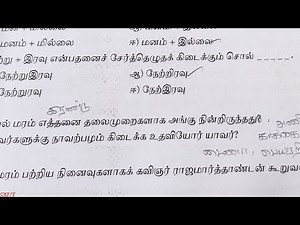 மனம் + யில்லை ஈ) மனம் + இல்லை
ற்று + இரவு என்பதனைச் சேர்த்தெழுதக் கிடைக்கும் சொல்
நேற்றுஇரவு ஆ) நேற்றிரவு
நேற்றுரவு ஈ) நேற்இரவு
இரண்டு
ல் மரம் எத்தனை தலைமுறைகளாக அங்கு நின்றிருந்தது? அணி
வர்களுக்கு நாவற்பழம் கிடைக்க உதவியோர் யாவர்? காக்கை
மைனா,
மரம் பற்றிய நினைவுகளாகக் கவிஞர் ராஜமார்த்தாண்டன் கூறுவ